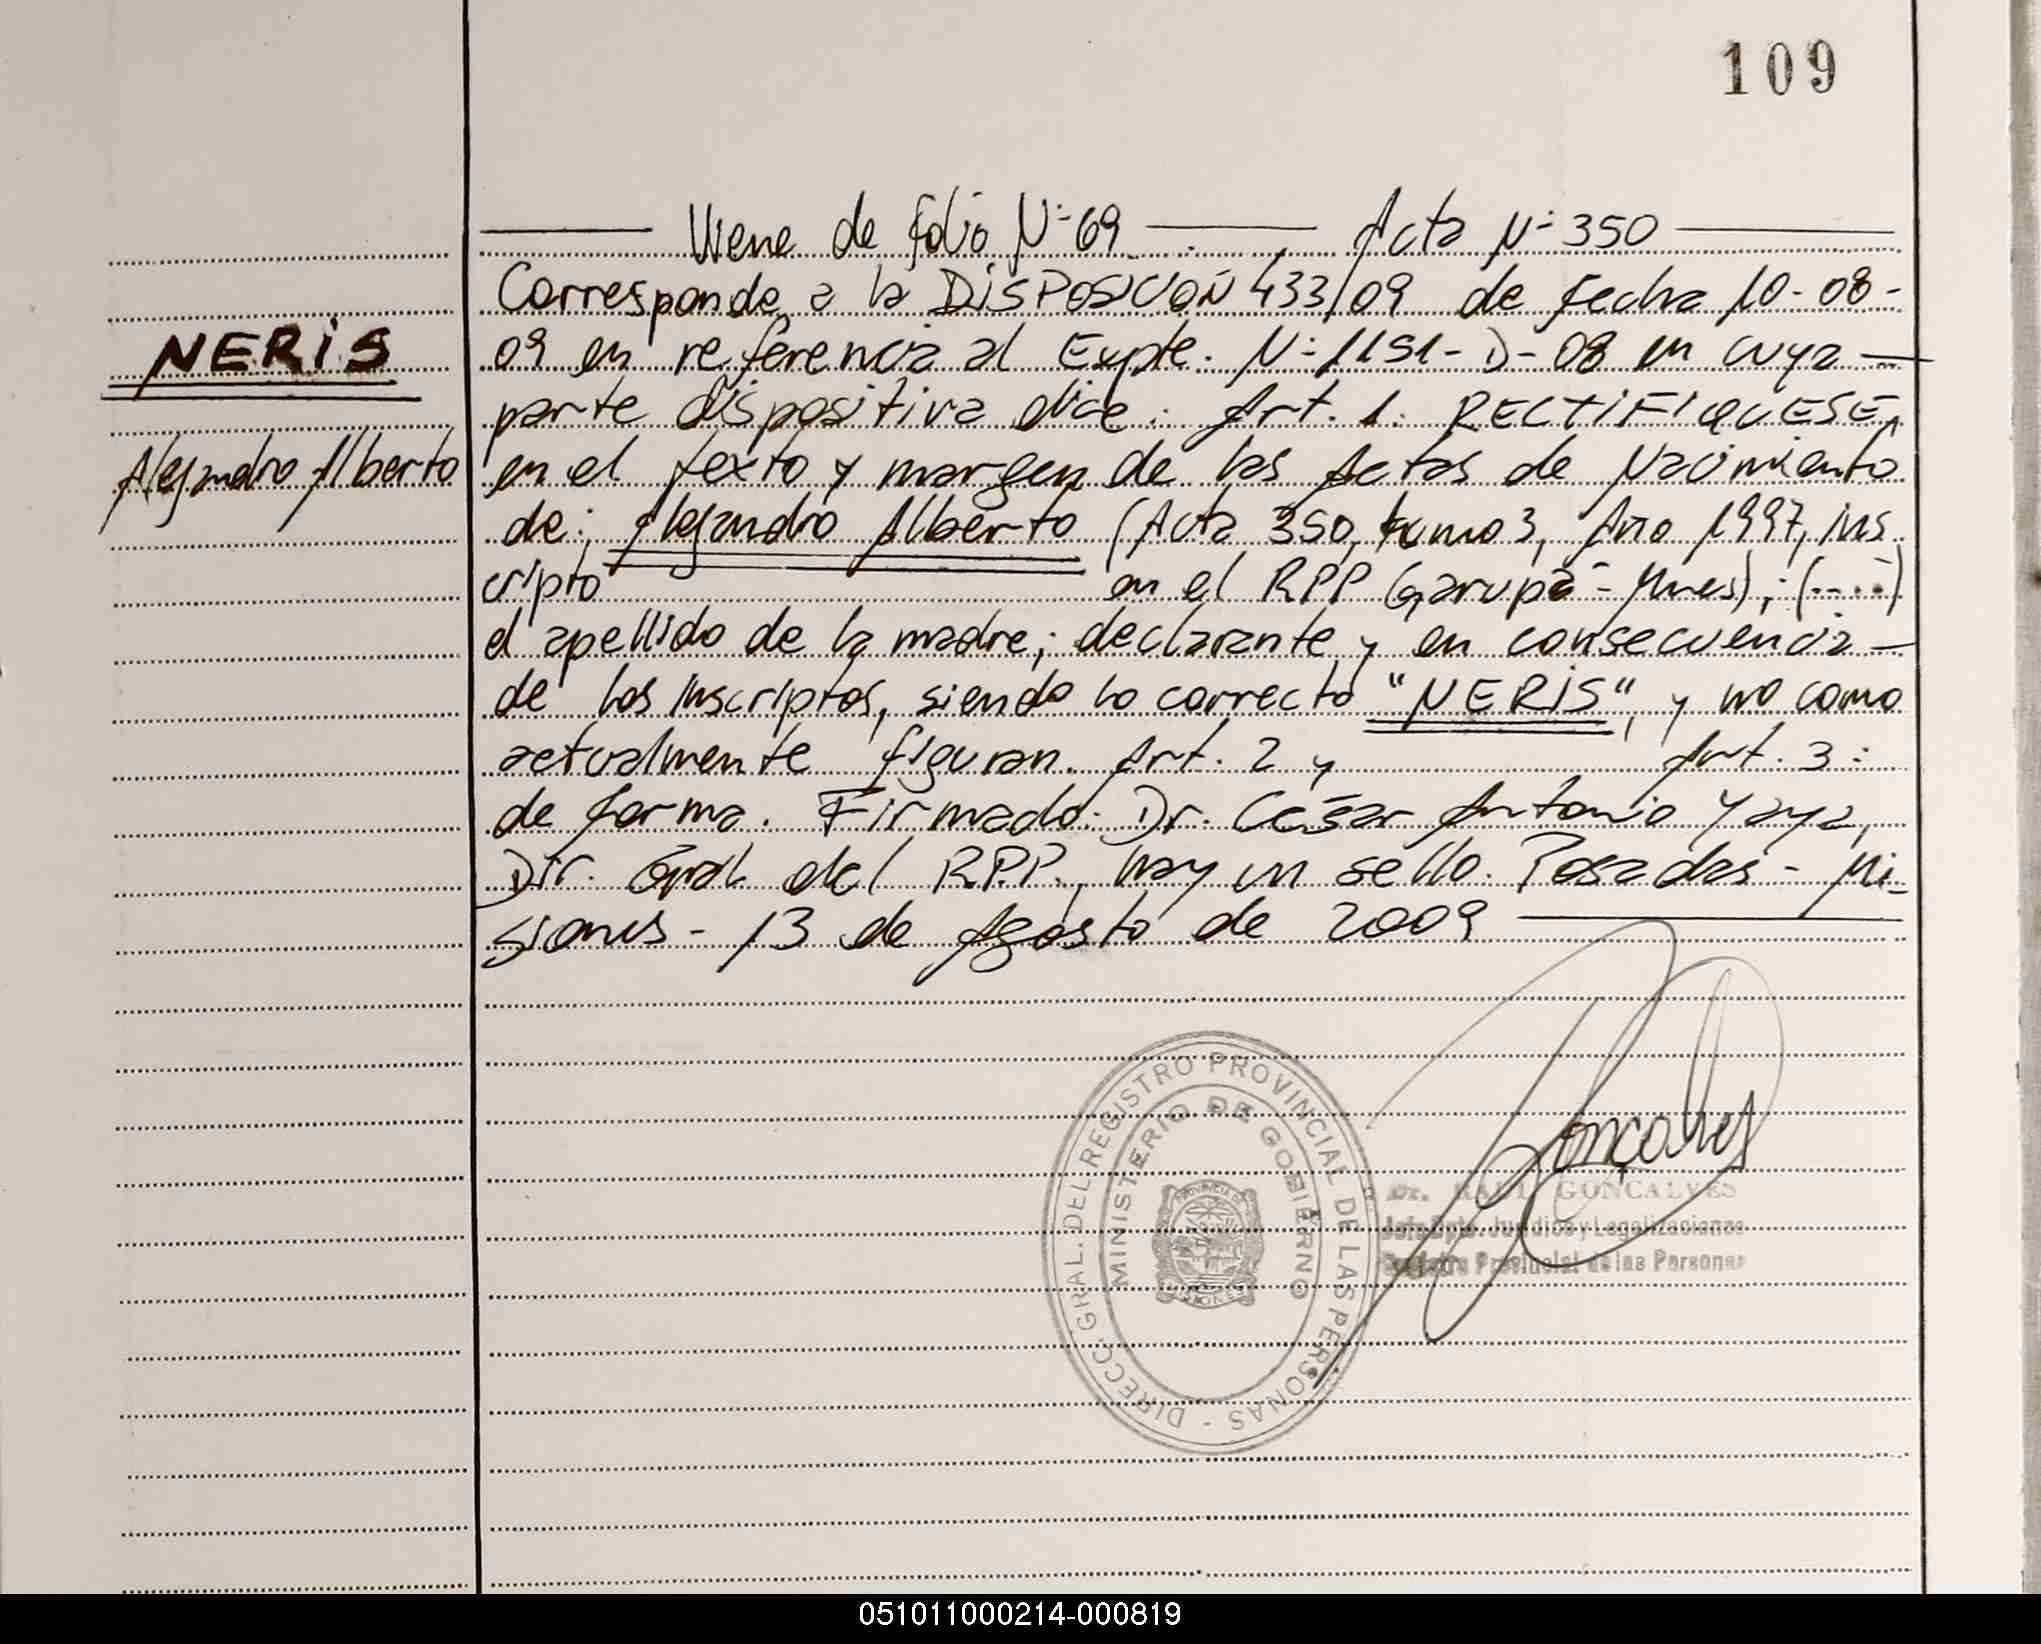 109
Viene de folio Nº 69 Acta Nº 350
Corresponde a la DISPOSICIÓN 433/09 de fecha 10-08-
NERIS
09 en referencia al Expte. Nº 1191-D-08 en cuya
parte dispositiva dice: Art. 1: RECTIFIQUESE,
Alejandro Alberto
en el texto y margen de las Actas de Nacimiento
de: Alejandro Alberto (Acta 350, tomo 3, Año 1997, ins
cripto en el RPP Garupá - Mnes); (....)
el apellido de la madre; declarante y en consecuencia
de los inscriptos, siendo lo correcto "NERIS", y no como
actualmente figuran. Art. 2 y Art. 3:
de forma. Firmado: Dr. César Antonio Yaya,
Dir. Gral. del R.P.P., hay un sello. Posadas - Mi-
siones - 13 de Agosto de 2009
DIRECC. GRAL. DEL REGISTRO PROVINCIAL DE LAS PERSONAS -
MINISTERIO DE GOBIERNO
PROVINCIA DE
MISIONES
Gonçalves
Dr. RAUL GONCALVES
Jefe Dpto. Jurídico y Legalizaciones
Registro Provincial de las Personas
051011000214-000819